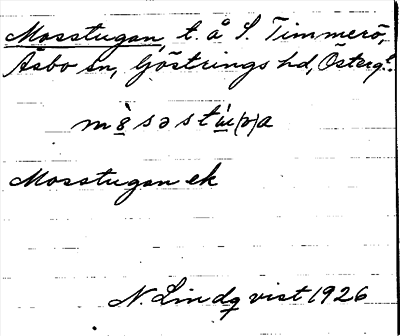 Mosstugan, t. å S. Timmerö,
Åsbo sn, Göstrings hd, Österg.
Mosstugan ek
N. Lindqvist 1926